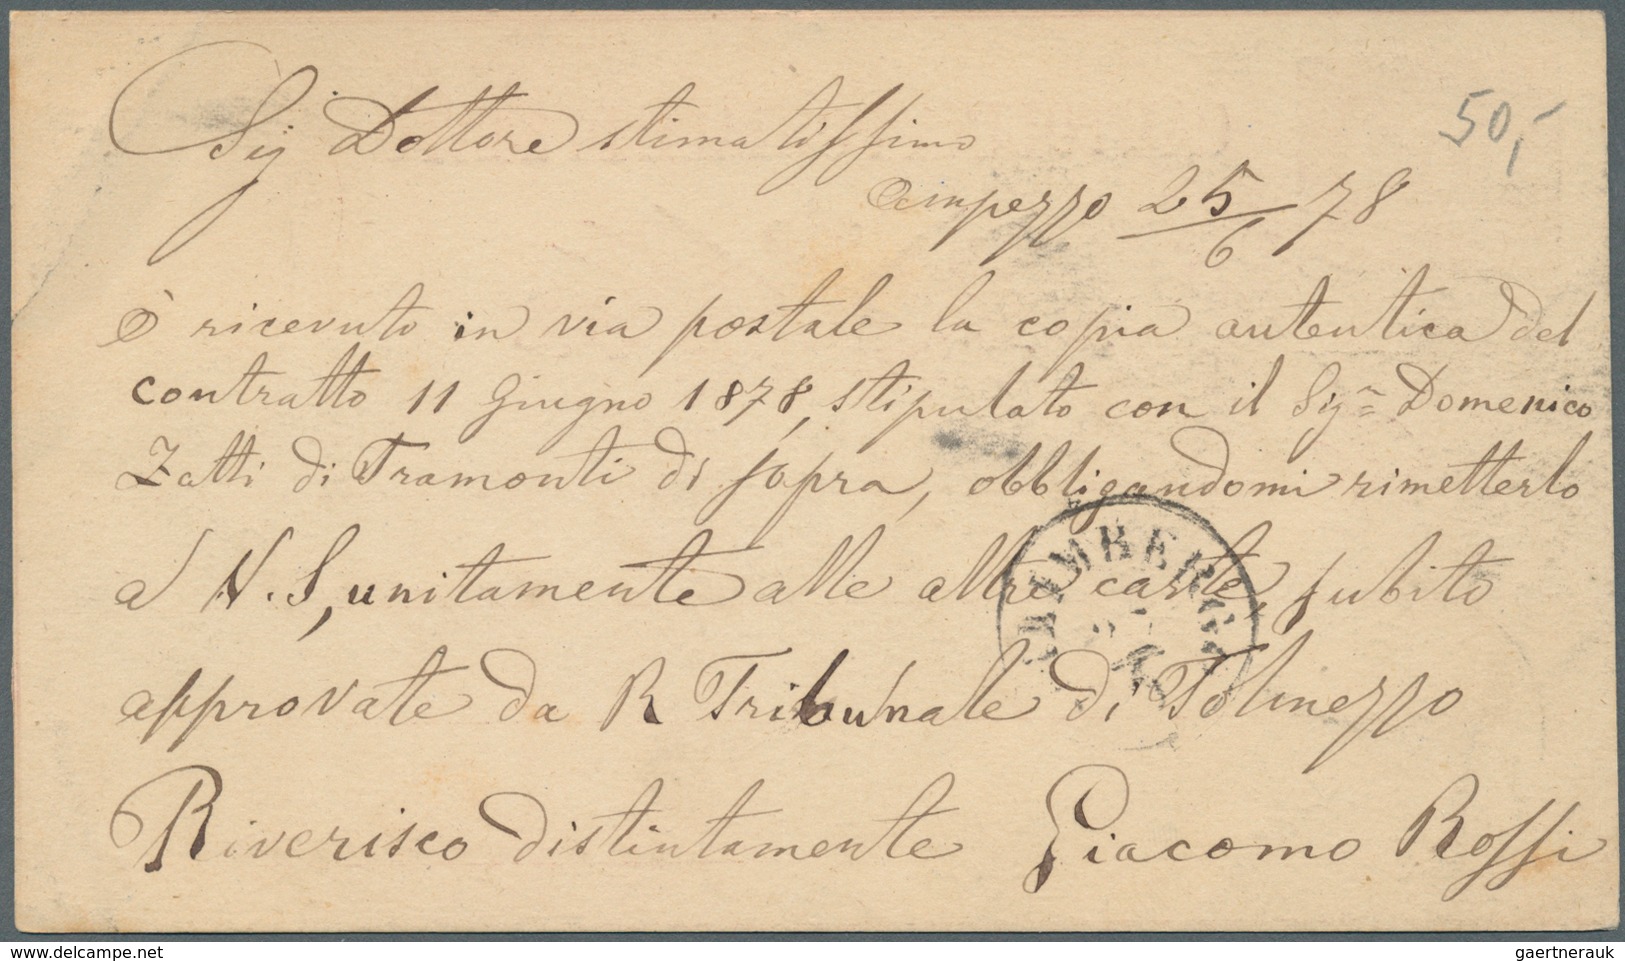 Sig Dottore stimatissimo
50,-
Ampezzo 25/6 78
È ricevuto in via postale la copia autentica del
contratto 11 Giugno 1878, stipulato con il Sigr Domenico
Zatti di Tramonti di sopra, obbligandomi rimetterlo
a V. S, unitamente alle altre carte, subito
approvate da R Tribunale di Tolmezzo
Riverisco distintamente Giacomo Rossi
BAMBERG
gaertnerauk